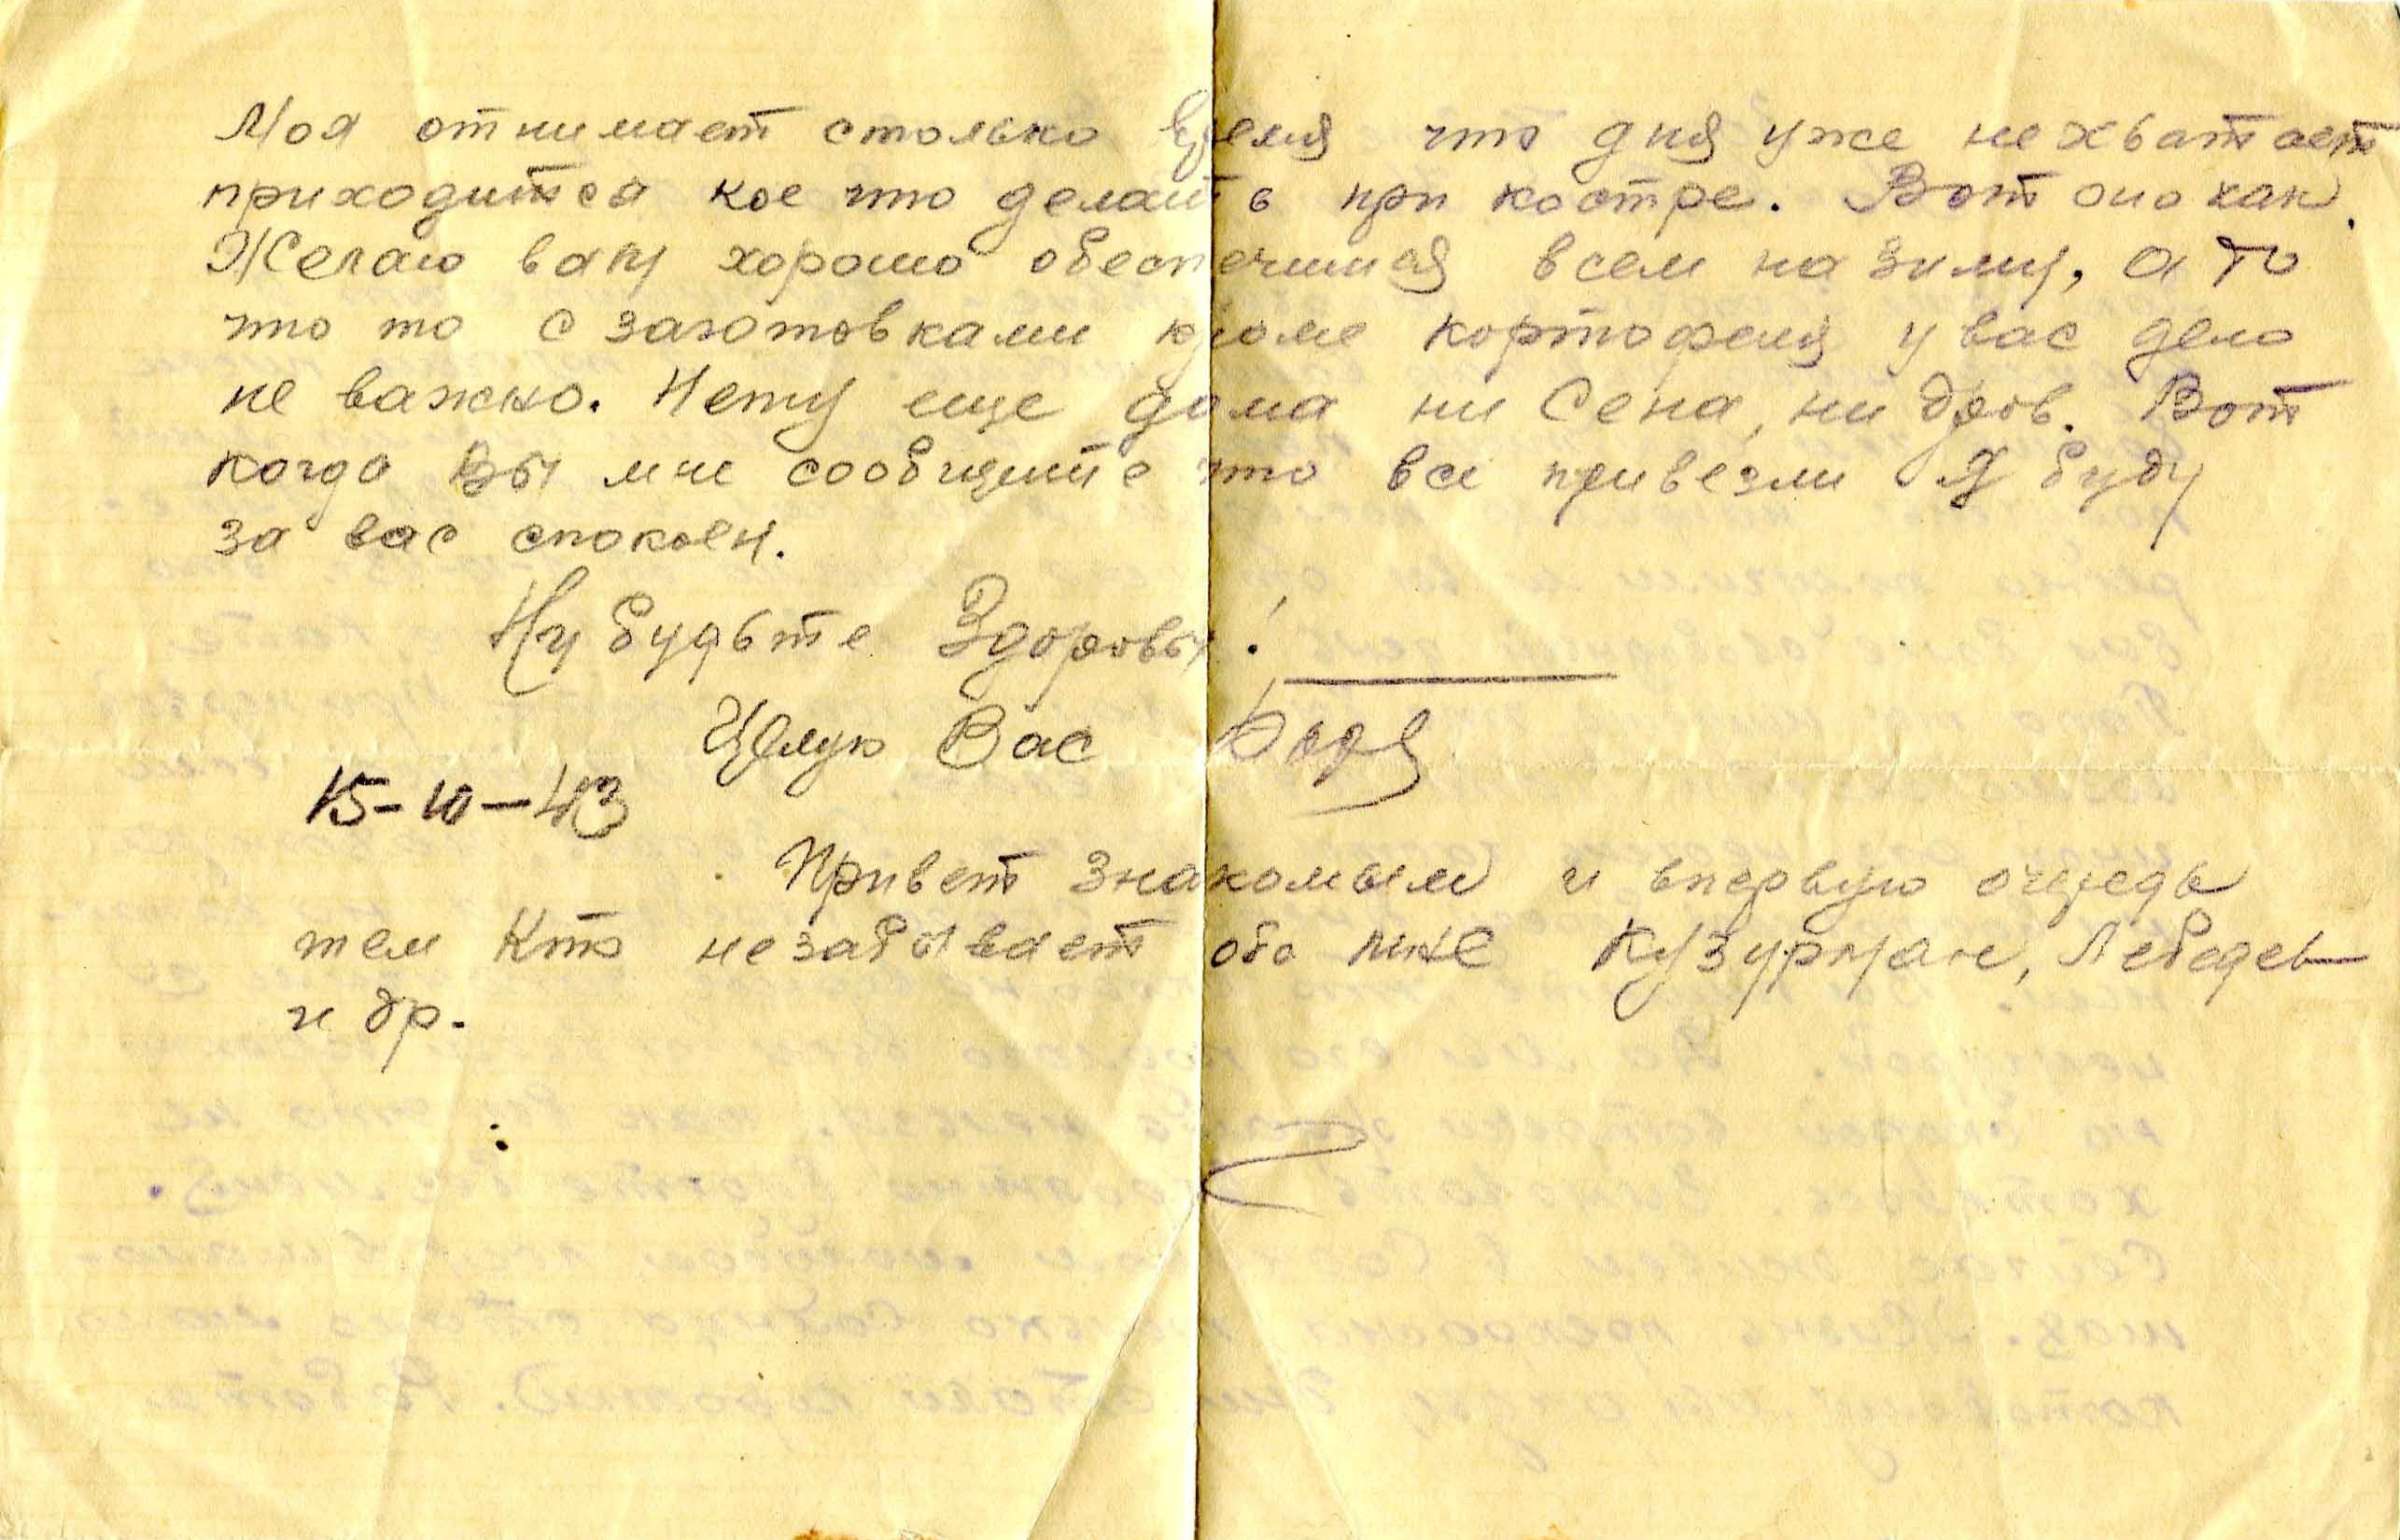 Моя отнимает столько время что дня уже не хватает
приходится кое что делать при костре. Вот оно как.
Желаю вам хорошо обеспечится всем на зиму, а то
что то с заготовками кроме кортофеля у вас дело
не важно. Нету еще дома ни Сена, ни дров. Вот
когда Вы мне сообщите что все привезли Я буду
за вас спокоен.
Ну будьте Здоровы!
Целую Вас Бодя
15-10-43
Привет знакомым и впервую очередь
тем Кто незабывает обо мне Кузурман, Лебедев
и др.